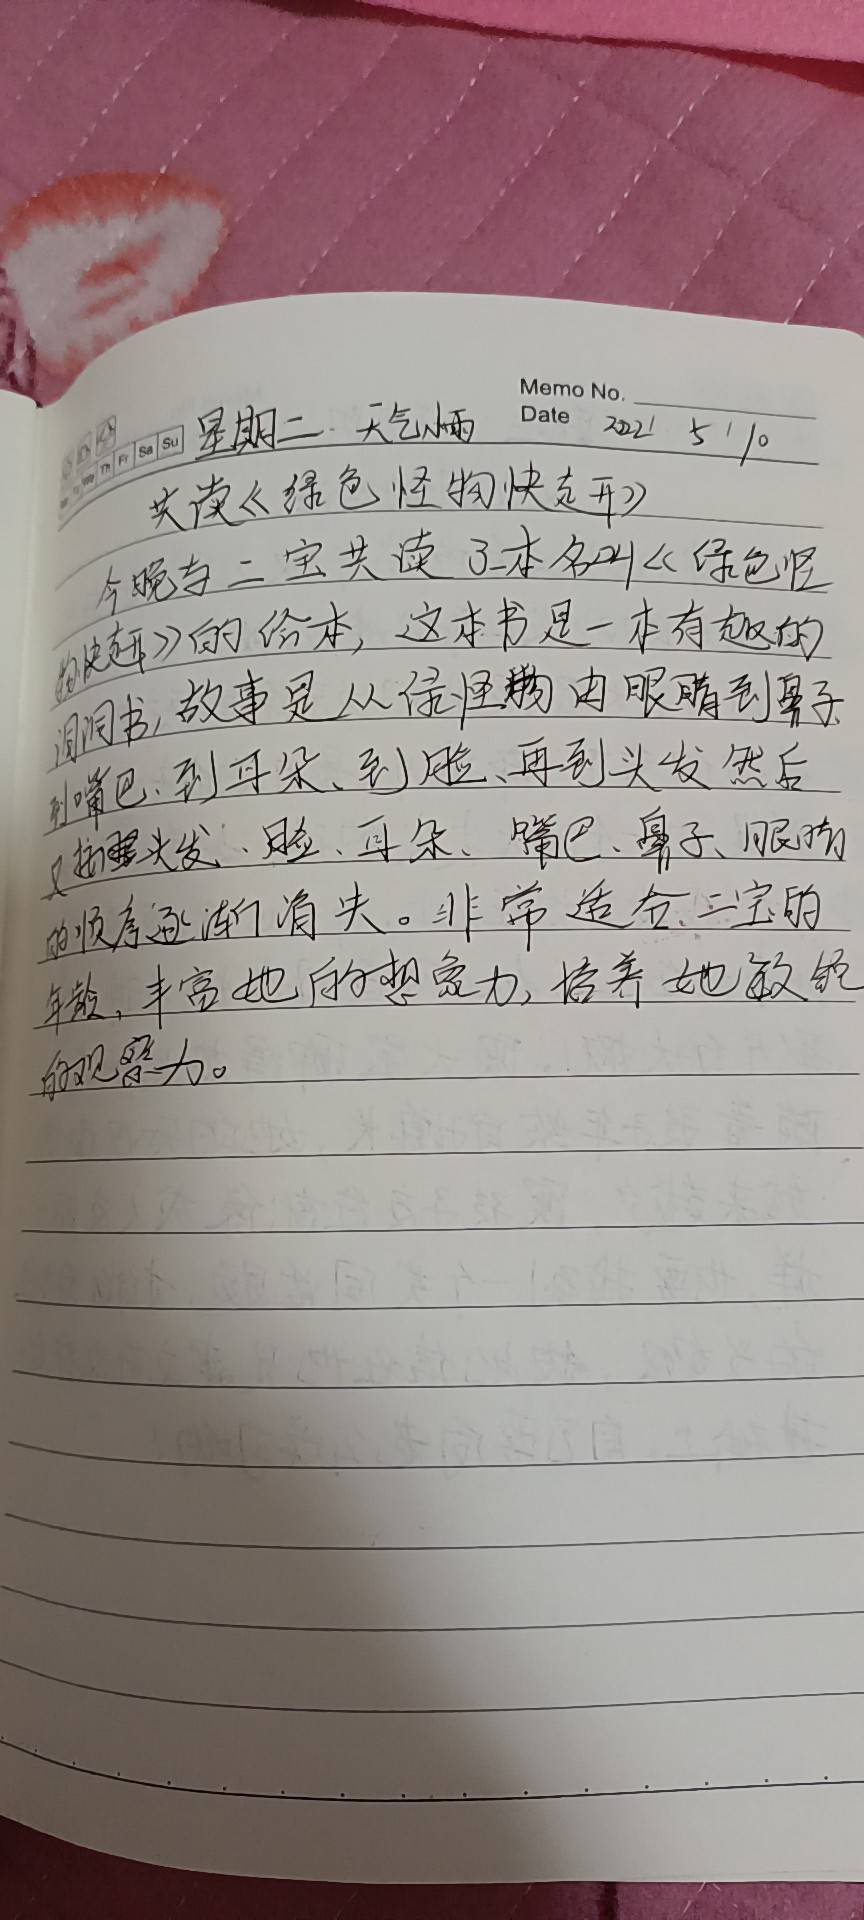 Memo No.
星期二 天气小雨 Date 2022 5 10
Th Fr Sa Su
共读《绿色怪物快走开》
今晚与二宝共读了一本名叫《绿色怪
物快走开》的绘本，这本书是一本有趣的
洞洞书，故事是从绿怪物由眼睛到鼻子
到嘴巴、到耳朵、到脸、再到头发然后
又按照头发、脸、耳朵、嘴巴、鼻子、眼睛
的顺序逐渐消失。非常适合二宝的
年龄，丰富她的想象力，培养她敏锐
的观察力。